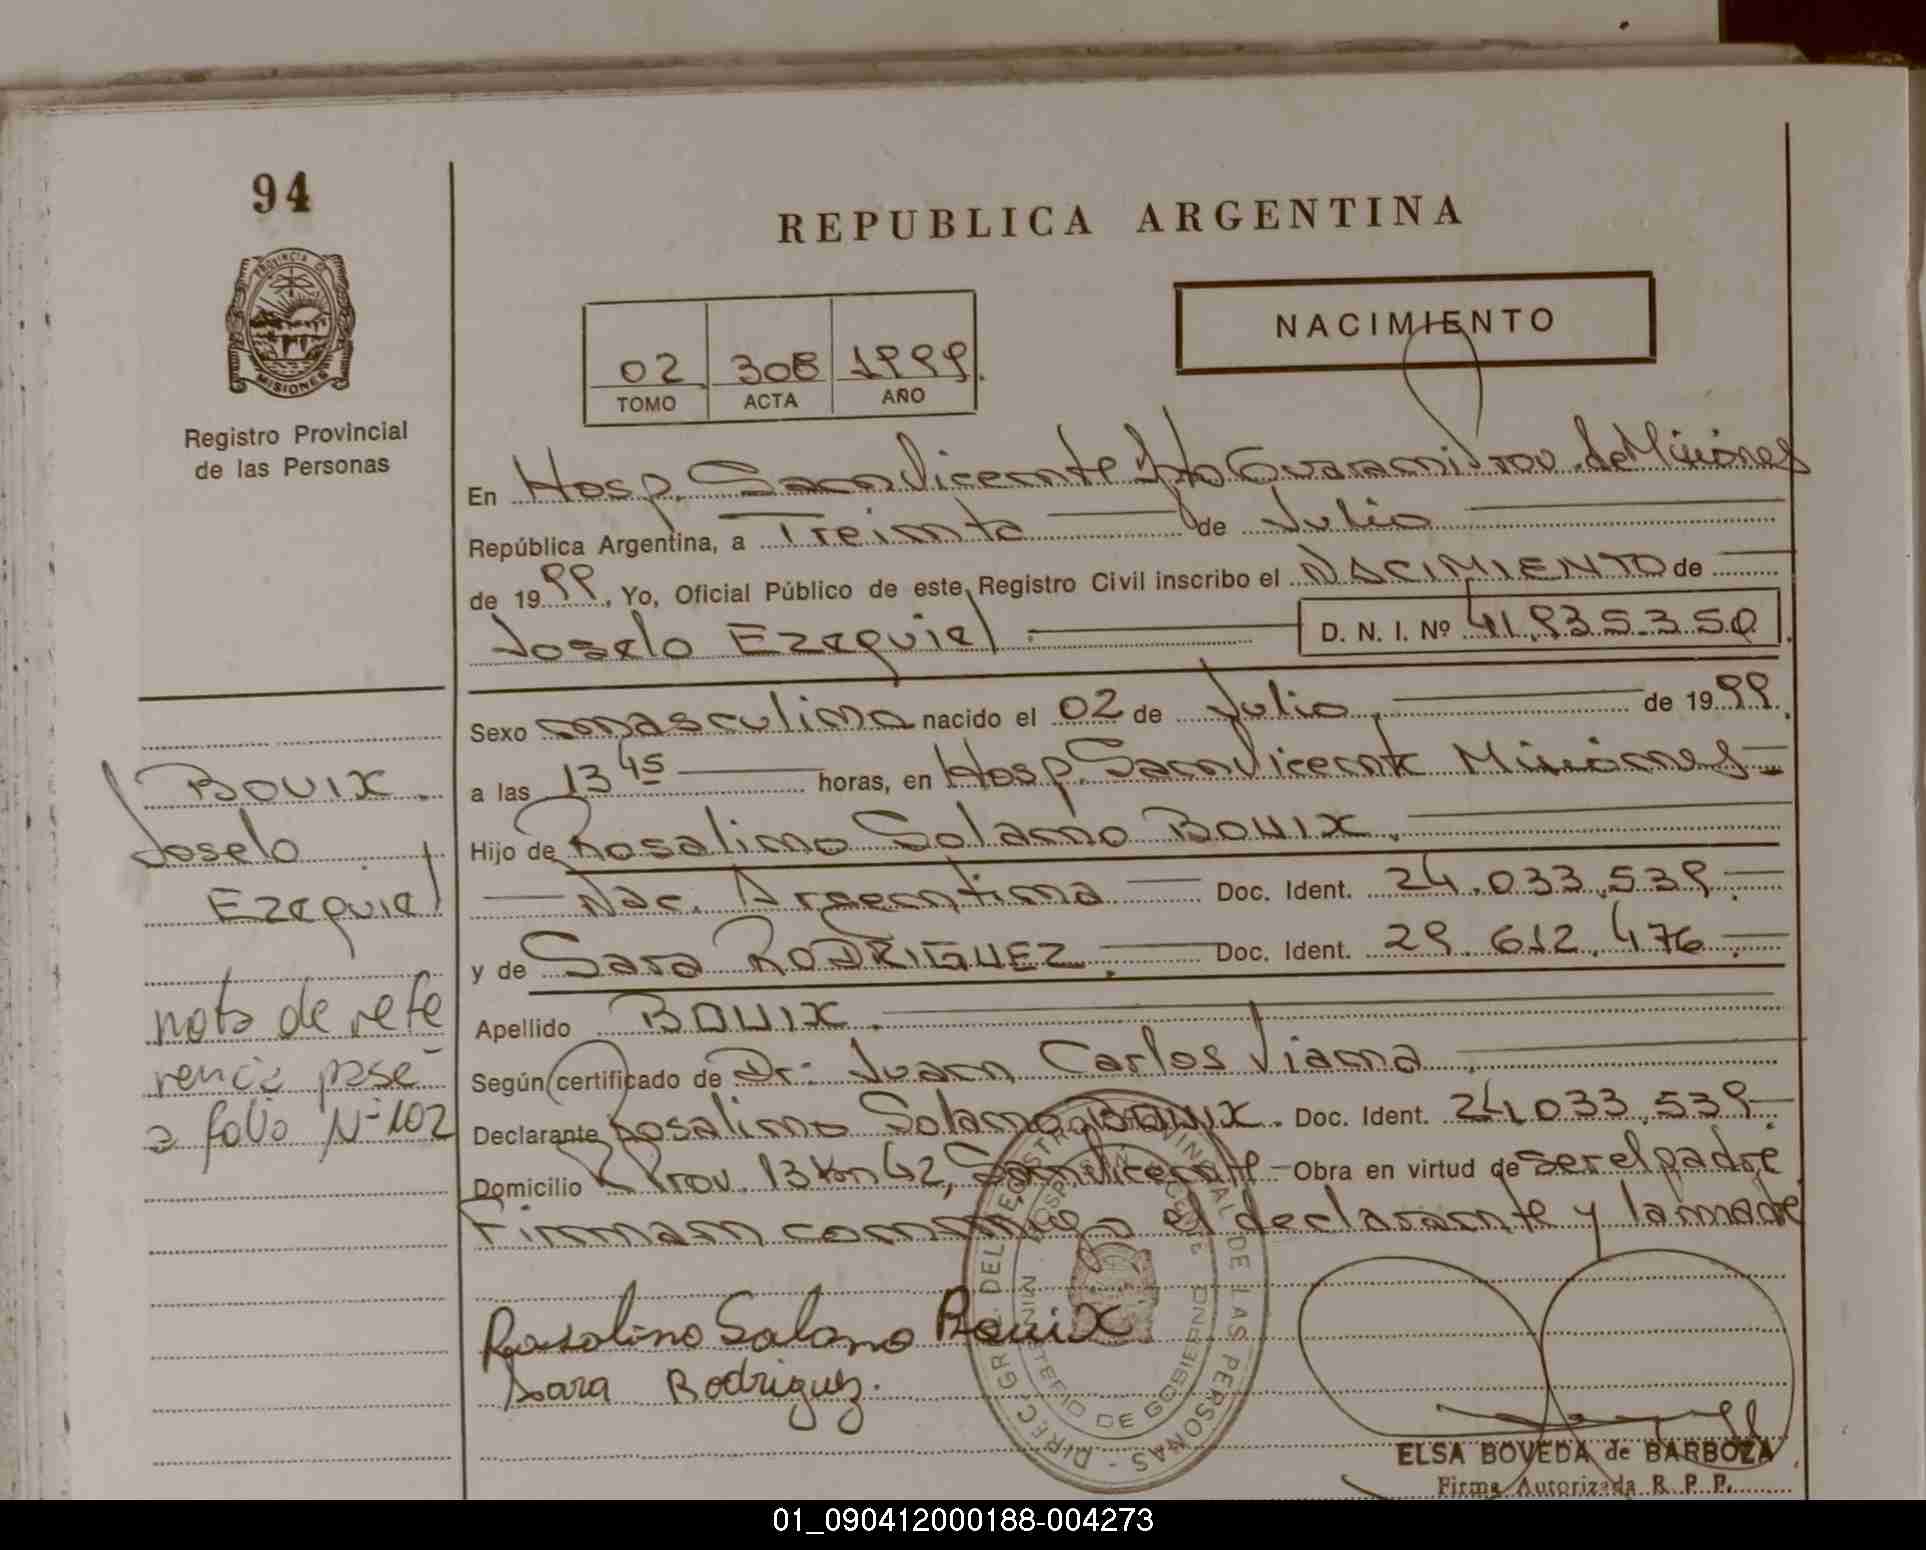 94
REPUBLICA ARGENTINA
PROVINCIA DE
MISIONES
Registro Provincial
de las Personas
02 308 1999
TOMO ACTA AÑO
NACIMIENTO
En Hosp. San Vicente Dto Guarani Prov. de Misiones
República Argentina, a Treinta de Julio
de 1999, Yo, Oficial Público de este Registro Civil inscribo el NACIMIENTO de
Joselo Ezequiel. D. N. I. Nº 41.935.350
Sexo masculino nacido el 02 de Julio, de 1999.
a las 13 45 horas, en Hosp. San Vicente Misiones
Hijo de Rosalino Solano BOUIX.
Nac. Argentina Doc. Ident. 24.033.539.
y de Sara RODRIGUEZ. Doc. Ident. 29.612.476
Apellido BOUIX.
Según certificado de Dr: Juan Carlos Viana.
Declarante Rosalino Solano BOUIX. Doc. Ident. 24.033.539
Domicilio R Prov. 13 Km 42, San Vicente Obra en virtud de ser el padre
Firman conmigo el declarante y la madre
BOUIX.
Joselo
Ezequiel
nota de refe
rencia pase
a folio Nº 102
Rosalino Solano Bouix
Sara Rodriguez.
DIREC. GRAL. DEL REGISTRO PROVINCIAL DE LAS PERSONAS
HOSP. SAN VICENTE
MINISTERIO DE GOBIERNO
ELSA BOVEDA de BARBOZA
Firma Autorizada R. P. P.
01_090412000188-004273